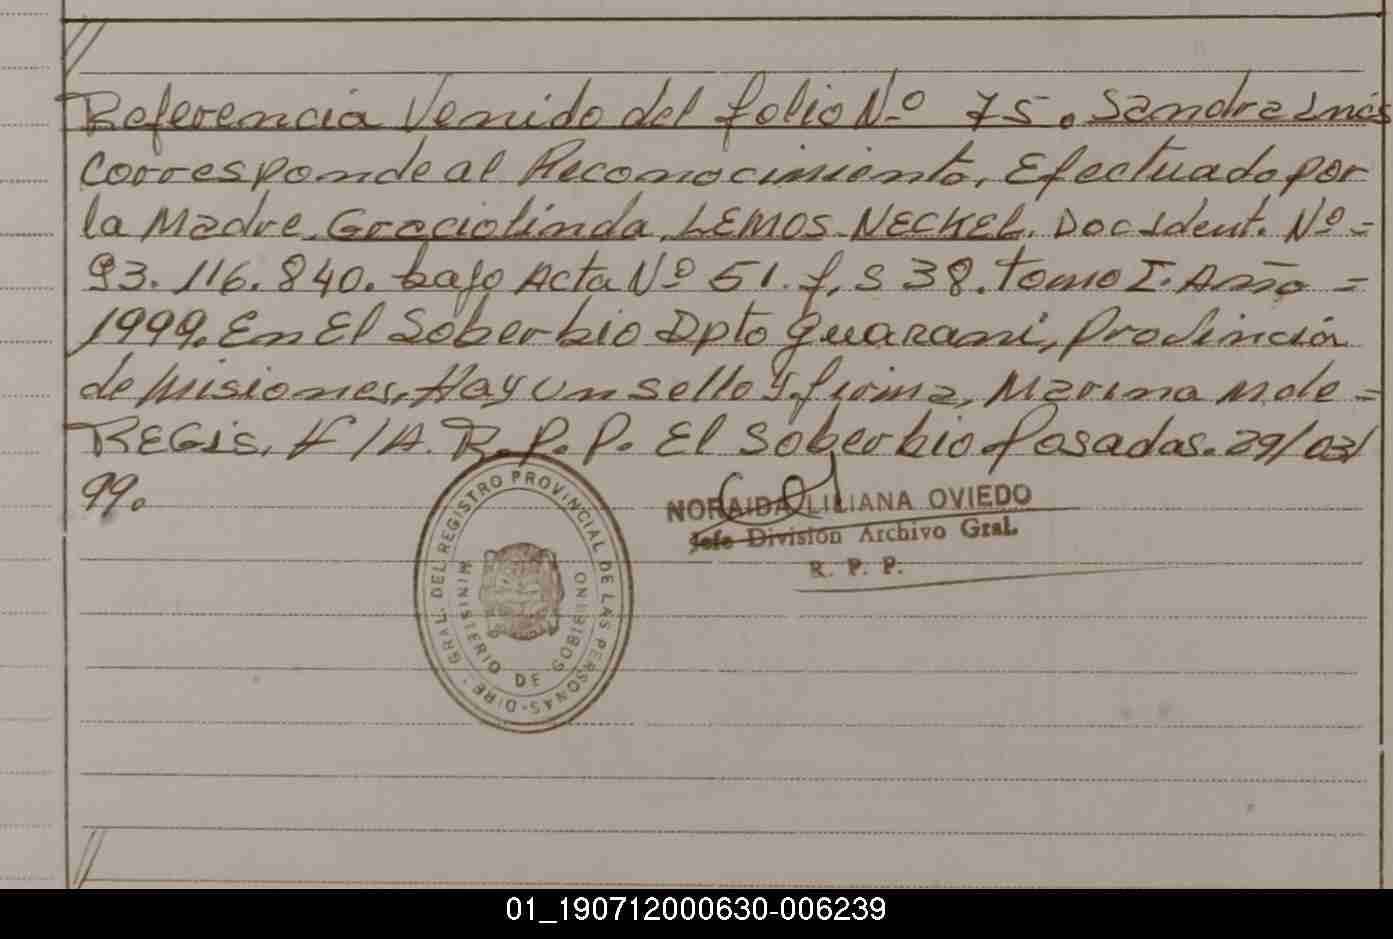 Referencia Venido del folio Nº 75. Sandra Inés
Corresponde al Reconocimiento, Efectuado por
la Madre, Graciolinda LEMOS NECKEL. Doc Ident. Nº =
93.116.840. bajo Acta Nº 51. f,s 38. Tomo I. Año =
1999. En El Soberbio Dpto Guarani, Provincia
de Misiones, Hay un sello y firma, Marina M de =
REGIS, F/A. R.P.P. El Soberbio Posadas. 29/03/
99.
NORAIDA LILIANA OVIEDO
Jefe División Archivo Gral.
R. P. P.
DIRE. GRAL. DEL REGISTRO PROVINCIAL DE LAS PERSONAS-
MINISTERIO DE GOBIERNO
01_190712000630-006239